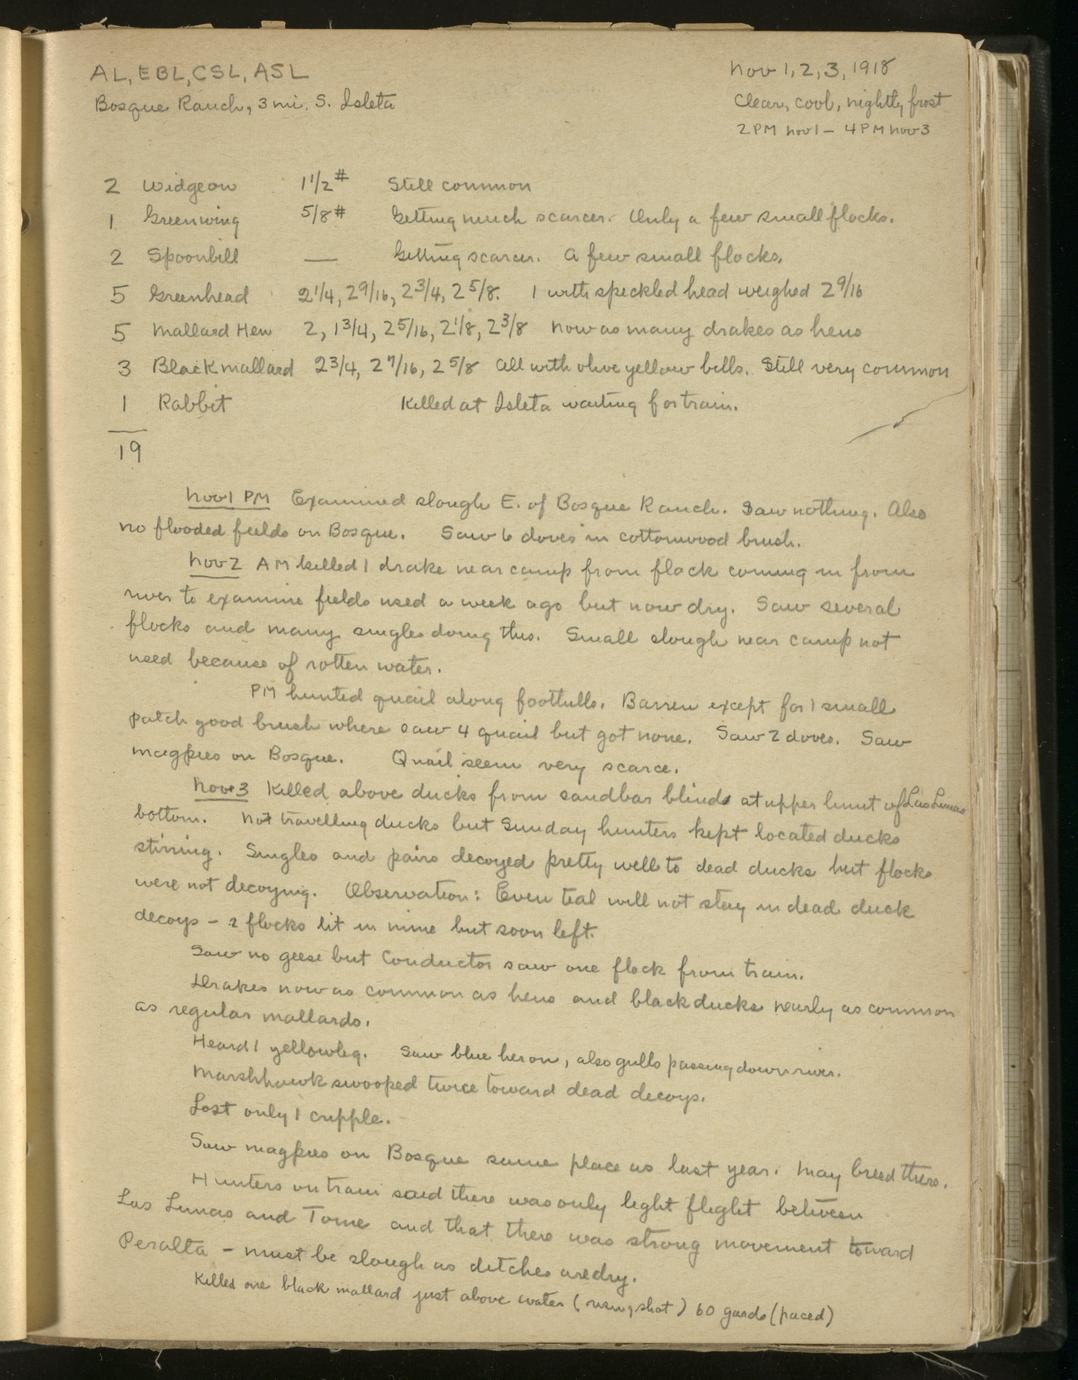 AL, EBL, CSL, ASL
Nov 1, 2, 3, 1918
Bosque Ranch, 3 mi. S. Isleta
Clear, cool, nightly frost
2 PM Nov 1 – 4 PM Nov 3
2 Widgeon 1 1/2 # Still common
1 Greenwing 5/8 # Getting much scarcer. Only a few small flocks.
2 Spoonbill — Getting scarcer. A few small flocks.
5 Greenhead 2 1/4, 2 9/16, 2 3/4, 2 5/8. 1 with speckled head weighed 2 9/16
5 Mallard Hen 2, 1 3/4, 2 5/16, 2 1/8, 2 3/8 Now as many drakes as hens
3 Black mallard 2 3/4, 2 7/16, 2 5/8 All with olive yellow bills. Still very common
1 Rabbit Killed at Isleta waiting for train.
19
Nov 1 PM Examined slough E. of Bosque Ranch. Saw nothing. Also
no flooded fields on Bosque. Saw 6 doves in cottonwood brush.
Nov 2 AM killed 1 drake near camp from flock coming in from
river to examine fields used a week ago but now dry. Saw several
flocks and many singles doing this. Small slough near camp not
used because of rotten water.
PM hunted quail along foothills. Barren except for 1 small
patch good brush where saw 4 quail but got none. Saw 2 doves. Saw
magpies on Bosque. Quail seem very scarce.
Nov 3 Killed above ducks from sandbar blinds at upper limit of Las Lunas
bottom. Not travelling ducks but Sunday hunters kept located ducks
stirring. Singles and pairs decoyed pretty well to dead ducks but flocks
were not decoying. Observation: Even teal will not stay in dead duck
decoys – 2 flocks lit in mine but soon left.
Saw no geese but Conductor saw one flock from train.
Drakes now as common as hens and black ducks nearly as common
as regular mallards.
Heard 1 yellowleg. Saw blue heron, also gulls passing down river.
Marshhawk swooped twice toward dead decoys.
Lost only 1 cripple.
Saw magpies on Bosque same place as last year. May breed there.
Hunters on train said there was only light flight between
Las Lunas and Tome and that there was strong movement toward
Peralta – must be slough as ditches are dry.
Killed one black mallard just above water (rising shot) 60 yards (paced)